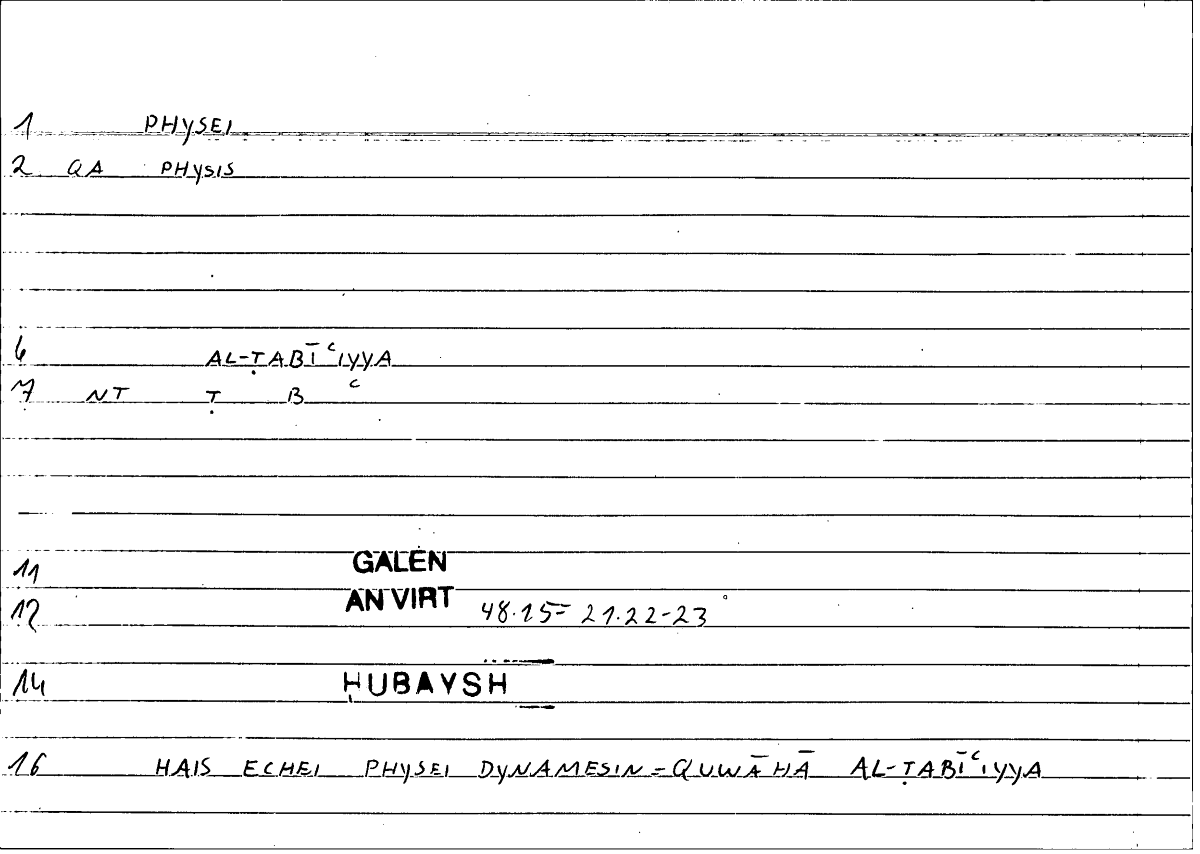 1 PHYSEI
2 QA PHYSIS
6 AL-ṬABĪʿIYYA
7 NT Ṭ B ʿ
11 GALEN
12 AN VIRT 48.15=21.22-23
14 ḤUBAYSH
16 HAIS ECHEI PHYSEI DYNAMESIN = QUWĀHĀ AL-ṬABĪʿIYYA